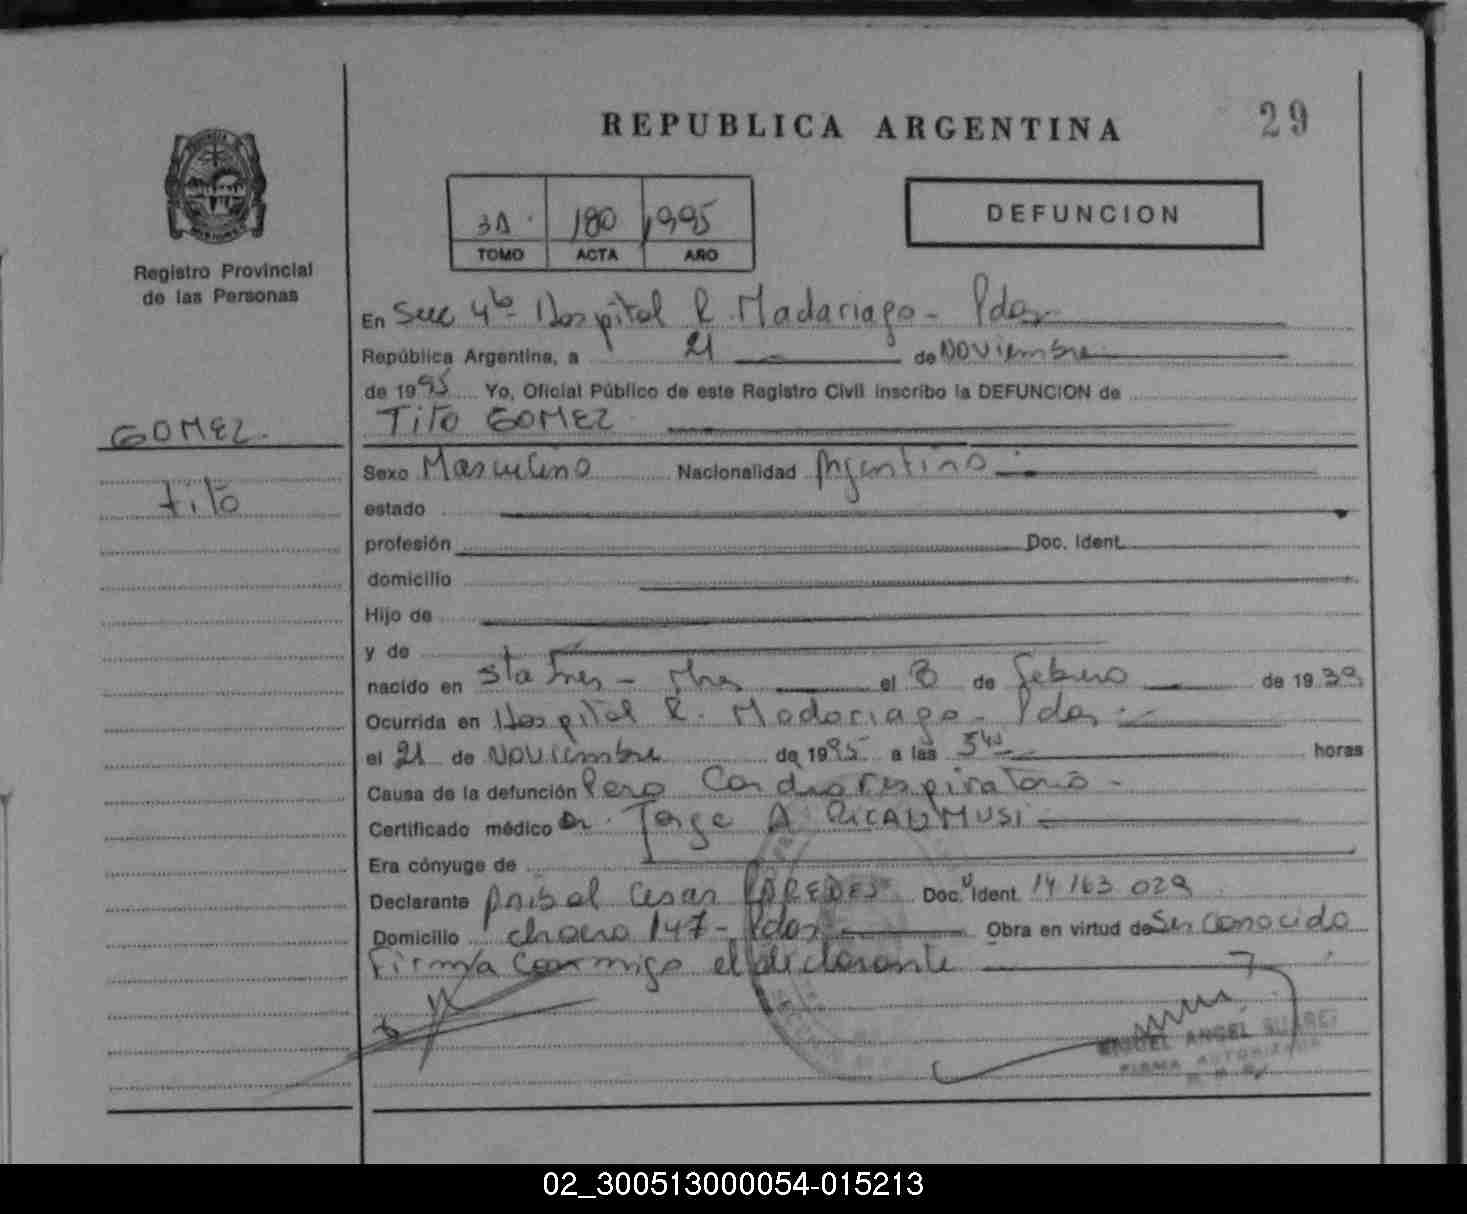 29
REPUBLICA ARGENTINA
DEFUNCION
180 1995
TOMO ACTA AÑO
Registro Provincial
de las Personas
En Secc 4ta Hospital R. Madariaga - Pdas
República Argentina, a 21 de Noviembre
de 1995 Yo, Oficial Público de este Registro Civil inscribo la DEFUNCION de
Tito GOMEZ
GOMEZ
Tito
Sexo Masculino Nacionalidad Argentino
estado
profesión Doc. Ident.
domicilio
Hijo de
y de
nacido en Sta Ines - Mnes el 8 de Febrero de 1939
Ocurrida en Hospital R. Madariaga - Pdas
el 21 de Noviembre de 1995 a las horas
Causa de la defunción Paro Cardiorespiratorio -
Certificado médico Dr. Jorge A
Era cónyuge de
Declarante Anibal Cesar PAREDES Doc. Ident. 14 163 029
Domicilio chacra 147 - Pdas Obra en virtud de Ser Conocido
Firma conmigo el declarante
MIGUEL ANGEL SUAREZ
FIRMA AUTORIZADA
02_300513000054-015213